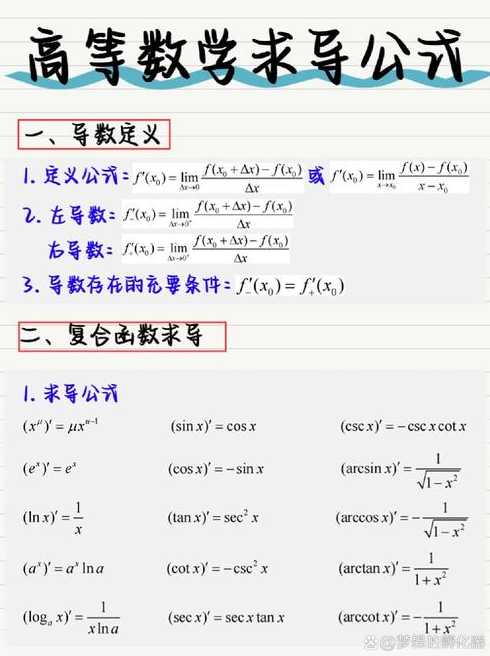 高等数学求导公式
一、导数定义
1. 定义公式: f′(x₀) = lim_{Δx→0} [f(x₀ + Δx) − f(x₀)] / Δx 或 f′(x₀) = lim_{x→x₀} [f(x) − f(x₀)] / (x − x₀)
2. 左导数: f′₋(x₀) = lim_{Δx→0⁻} [f(x₀ + Δx) − f(x₀)] / Δx
右导数: f′(x₀) = lim_{Δx→0⁺} [f(x₀ + Δx) − f(x₀)] / Δx
3. 导数存在的充要条件: f′₋(x₀) = f′₊(x₀)
二、复合函数求导
1. 求导公式
(x^μ)′ = μx^{n−1} (sin x)′ = cos x (csc x)′ = −csc x cot x
(eˣ)′ = eˣ (cos x)′ = −sin x (arcsin x)′ = 1/√(1−x²)
(ln x)′ = 1/x (tan x)′ = sec² x (arccos x)′ = −1/√(1−x²)
(aˣ)′ = aˣ ln a (cot x)′ = −csc² x (arctan x)′ = 1/(1+x²)
(logₐ x)′ = 1/(x ln a) (sec x)′ = sec x tan x (arccot x)′ = −1/(1+x²)
@梦想的孵化器